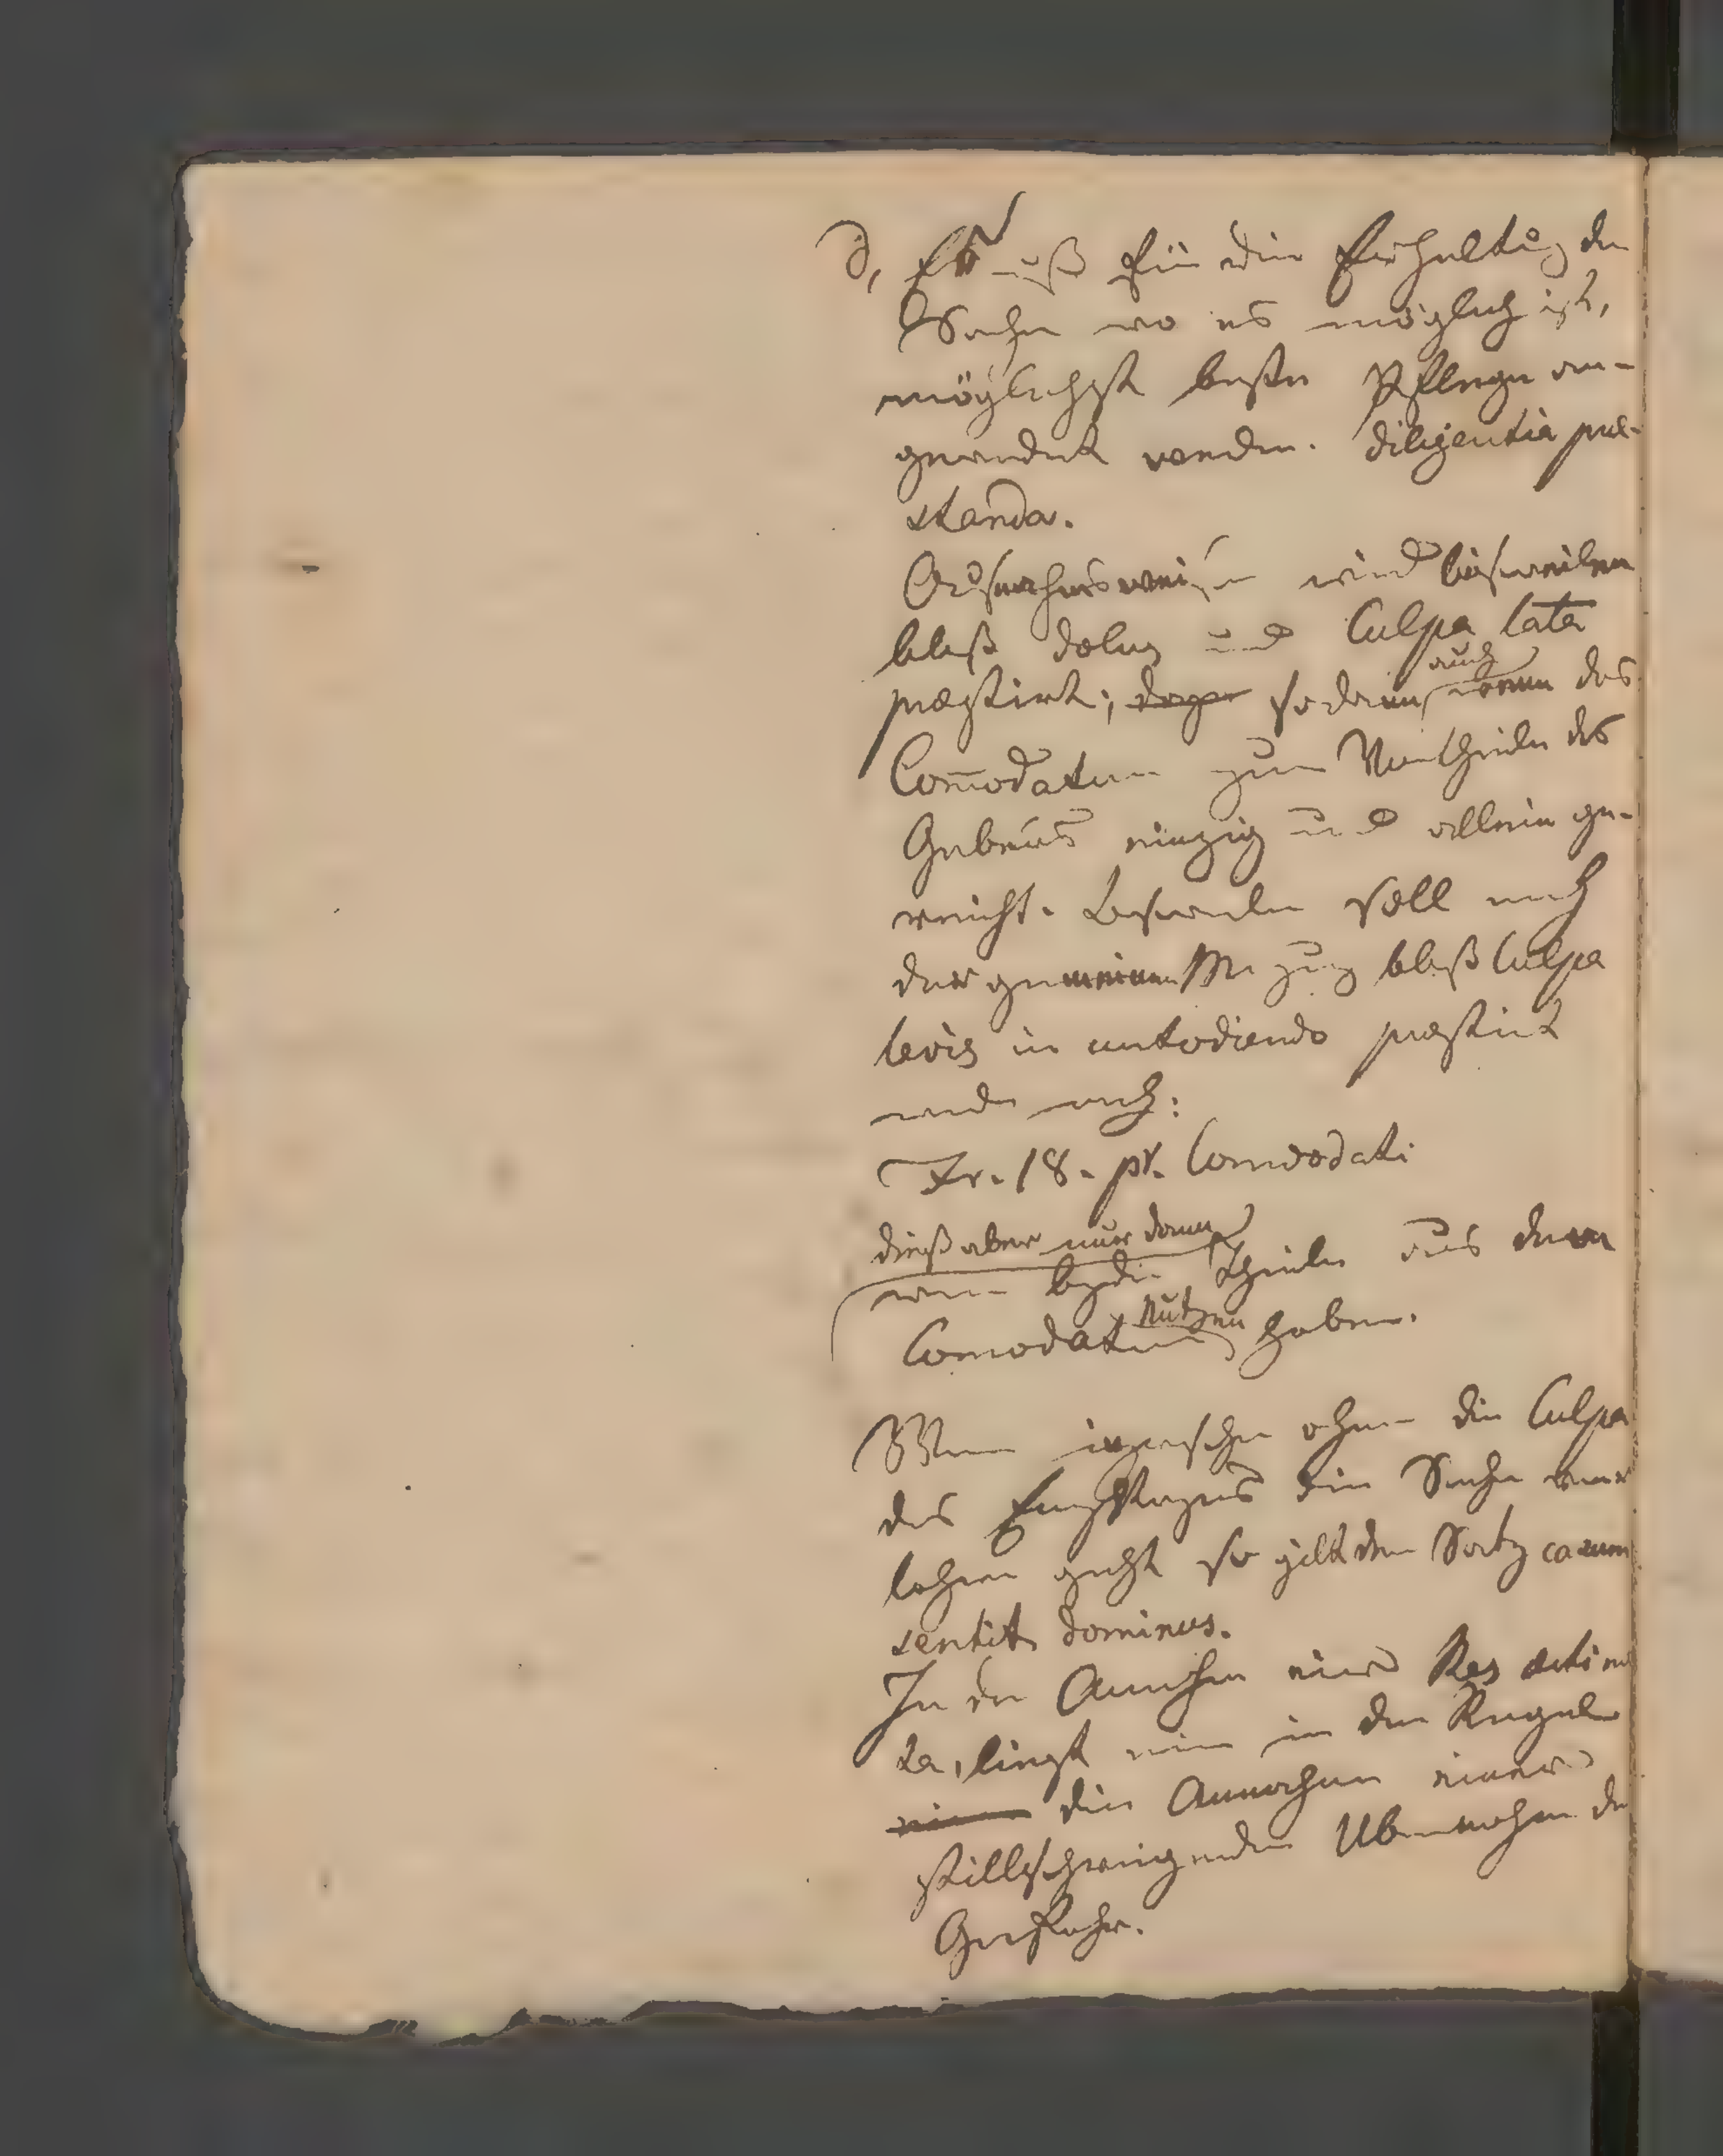 d, Es muß für die Erhaltung der
Sache wo es möglich ist,
möglichst beste Pflege an-
gewendet werden. diligentia præ-
standa.
Ausnahmsweise wird bisweilen
bloß dolus und Culpa lata
præstirt; sodann auch wenn das
Com̄odatum zum Vortheile des
Gebers einzig und allein ge-
reicht. Bisweilen soll nach
der gemeinen bloß Culpa
levis in custodiendo præstirt
werden nach:
Fr. 18. pr. Commodati
dieß aber nur dann
wenn beyde Theile aus dem
Comodatum Nutzen haben.
Wenn inzwischen ohne die Culpa
des Empfängers die Sache ver-
lohren geht so gilt der Satz casum
sentit dominus.
In der Annahme einer Res æstima-
ta, liegt nun in der Regel
die Annahme einer
stillschweigenden Übernahme der
Gefahr.